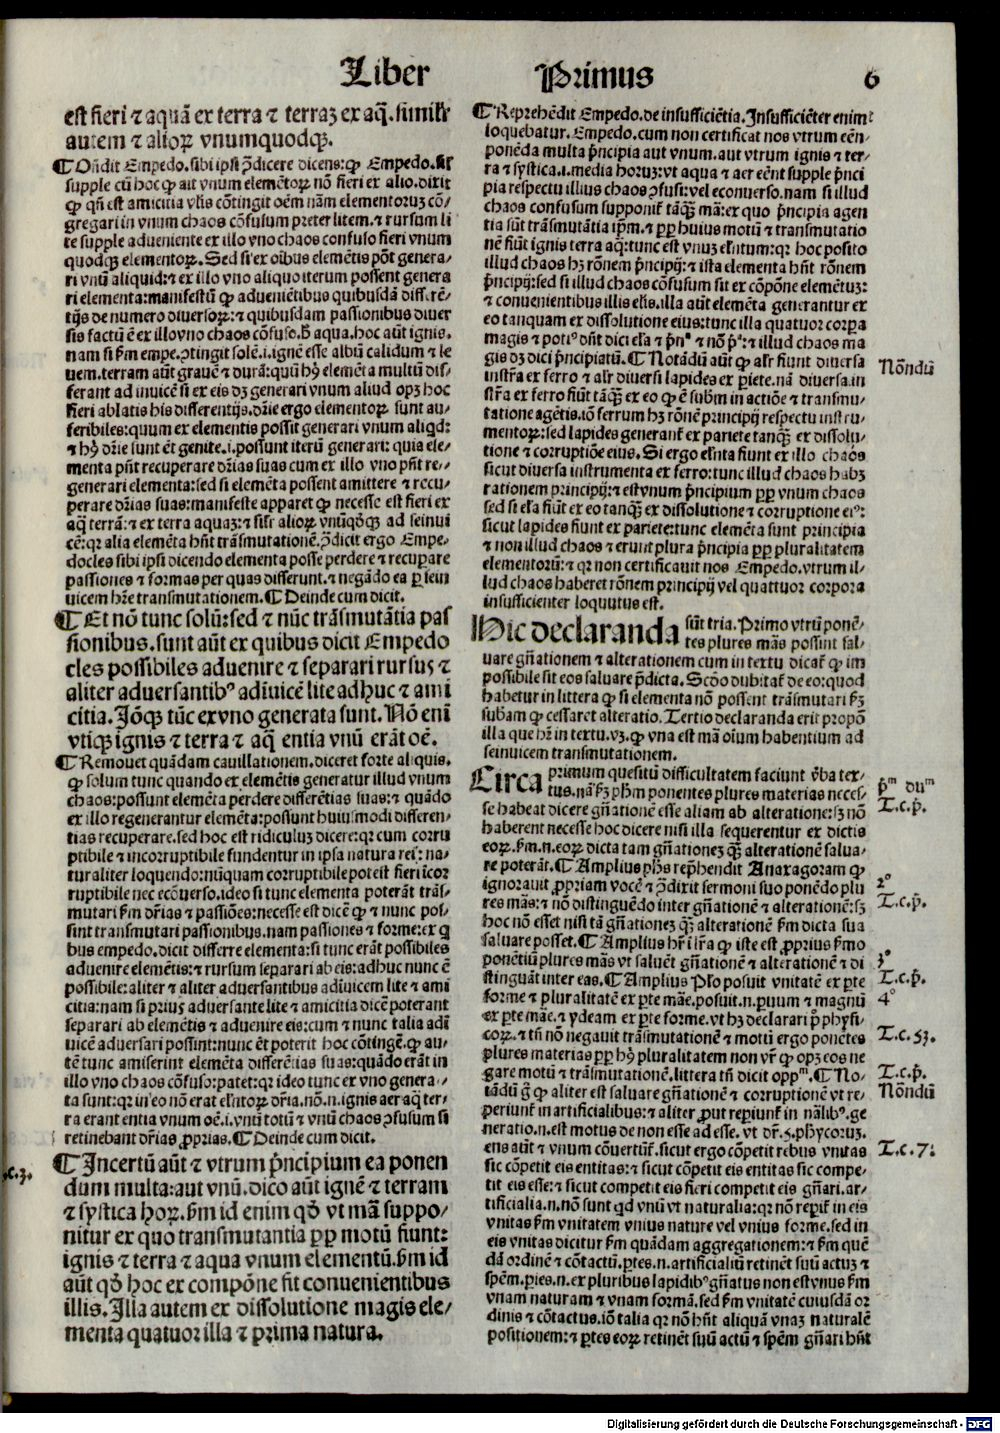 Liber Primus 6
est fieri ⁊ aquã ex terra ⁊ terraȝ ex aq̃. similr
autem ⁊ alioꝝ vnumquodqꝫ.
¶ Oñdit Empedo. sibi ipsi p̃dicere dicens: ꝙ Empedo. sil̃
supple cũ hoc ꝙ ait vnum elemẽtoꝝ nõ fieri ex alio. dixit
ꝙ qñ est amicitia vl̃is cõtingit oẽm nãm elementoruȝ cõ/
gregari in vnum chaos cõfusum preter litem. ⁊ rursum li
te supple adueniente ex illo vno chaos confuso fieri vnum
quodqꝫ elementoꝝ. Sed si ex oĩbus elemẽtis põt genera/
ri vnũ aliquid: ⁊ ex illo vno aliquo iterum possent genera
ri elementa: manifestũ ꝙ adueniẽtibus quibusdã differẽ/
tijs de numero diuersoꝝ: ⁊ quibusdam passionibus diuer
sis factũ ẽ ex illo vno chaos cõfuso. h̃ aqua. hoc aũt ignis.
nam si ẜm empe. ↄtingit solẽ. i. ignẽ esse albũ calidum ⁊ le
uem. terram aũt grauẽ ⁊ durã: quũ hꝫ elemẽta multũ dif/
ferant ad inuicẽ si ex eis dꝫ generari vnum aliud opꝫ hoc
fieri ablatis his differentijs. dr̃ie ergo elementoꝝ sunt au/
feribiles: quum ex elementis possit generari vnum aliqd:
⁊ hꝫ dr̃ie sunt ẽt genite. i. possunt iterũ generari: quia ele/
menta pñt recuperare dr̃ias suas cum ex illo vno pñt re/
generari elementa: sed si elemẽta possent amittere ⁊ recu/
perare dr̃ias suas: manifeste apparet ꝙ necesse est fieri ex
aq̃ terrã: ⁊ ex terra aquaȝ: ⁊ sil̃r alioꝝ vnũqdqꝫ ad seinui
cẽ: qꝛ alia elemẽta hñt trãsmutationẽ. p̃dicit ergo Empe/
docles sibi ipsi dicendo elementa posse perdere ⁊ recupare
passiones ⁊ formas per quas differunt. ⁊ negãdo ea ꝑ sein
uicem hr̃e transmutationem. ¶ Deinde cum dicit.
¶ Et nõ tunc solũ: sed ⁊ nũc trãsmutãtia pas
sionibus. sunt aũt ex quibus dicit Empedo
cles possibiles aduenire ⁊ separari rursus ⁊
aliter aduersantibꝰ adiuicẽ lite adhuc ⁊ ami
citia. Jõqꝫ tũc ex vno generata sunt. Nõ eni
vtiqꝫ ignis ⁊ terra ⁊ aq̃ entia vnũ erãt oẽ.
¶ Remouet quãdam cauillationem. diceret forte aliquis.
ꝙ solum tunc quando ex elemẽtis generatur illud vnum
chaos: possunt elemẽta perdere differẽtias suas: ⁊ quãdo
ex illo regenerantur elemẽta: possunt huiusmodi differen/
tias recuperare. sed hoc est ridiculuȝ dicere: qꝛ cum corru
ptibile ⁊ incorruptibile fundentur in ipsa natura rei: na/
turaliter loquendo: nũquam corruptibile potest fieri icor
ruptibile nec ecõuerso. ideo si tunc elementa poterãt trãs/
mutari ẜm dr̃ias ⁊ passiões: necesse est dicẽ ꝙ ⁊ nunc pos/
sint transmutari passionibus. nam passiones ⁊ forme: ex q
bus empedo. dicit differre elementa: si tunc erãt possibiles
aduenire elemẽtis: ⁊ rursum separari ab eis: adhuc nunc ẽ
possibile: aliter ⁊ aliter aduersantibus adiuicem lite ⁊ ami
citia: nam si prius aduersante lite ⁊ amicitia dicẽ poterant
separari ab elementis ⁊ aduenire eis: cum ⁊ nunc talia adi
uicẽ aduersari possint: nunc ẽt poterit hoc cõtingẽ. ꝙ au/
tẽ tunc amiserint elemẽta differẽtias suas: quãdo erãt in
illo vno chaos cõfuso: patet: qꝛ ideo tunc ex vno genera/
ta sunt: qꝛ in eo nõ erat el̃ntoꝝ dr̃ia. nõ. n. ignis aer aq̃ ter/
ra erant entia vnum oẽ. i. vnũ totũ ⁊ vnũ chaos ↄfusum si
retinebant dr̃ias ꝓprias. ¶ Deinde cum dicit.
¶ Jncertũ aũt ⁊ vtrum p̃ncipium ea ponen
dum multa: aut vnũ. dico aũt ignẽ ⁊ terram
⁊ systica hoꝝ. ẜm id enim qð vt mã suppo/
nitur ex quo transmutantia ꝓp motũ fiunt:
ignis ⁊ terra ⁊ aqua vnum elementũ. ẜm id
aũt qð hoc ex compõne fit conuenientibus
illis. Jlla autem ex dissolutione magis ele/
menta quatuor illa ⁊ prima natura.
¶ Reprehẽdit Empedo. de insufficiẽtia. Jnsufficiẽter enim
loquebatur. Empedo. cum non certificat nos vtrum eẽn/
ponẽda multa p̃ncipia aut vnum. aut vtrum ignis ⁊ ter/
ra ⁊ systica. i. media horuȝ: vt aqua ⁊ aer eẽnt supple p̃nci
pia respectu illius chaos ↄfusi: vel econuerso. nam si illud
chaos confusum supponit̃ tãqꝫ mã: ex quo p̃ncipia agen
tia sũt trãsmutãtia ip̃m. ⁊ ꝓp huius motũ ⁊ transmutatio
nẽ fiũt ignis terra aq̃: tunc est vnuȝ el̃ntum: qꝛ hoc posito
illud chaos hꝫ rõnem p̃ncipij: ⁊ ista elementa hñt rõnem
p̃ncipij: sed si illud chaos cõfusum sit ex cõpõne elemẽtuȝ:
⁊ conuenientibus illis el̃is. illa aũt elemẽta generantur ex
eo tanquam ex dissolutione eius: tunc illa quatuor corpa
magis ⁊ potiꝰ dñt dici el̃a ⁊ p̃nᵃ ⁊ nõ pᵃ: ⁊ illud chaos ma
gis dꝫ dici p̃ncipiatũ. ¶ Notãdũ aũt ꝙ al̃r fiunt diuersa
instr̃a ex ferro ⁊ al̃r diuersi lapides ex piete. nã diuersa. in
str̃a ex ferro fiũt tãqꝫ ex eo ꝙ ẽ subm̃ in actiõe ⁊ transmu/
tatione agẽtis. iõ ferrum hꝫ rõnẽ principij respectu instru/
mentoꝝ: sed lapides generant̃ ex pariete tanqꝫ ex dissolu/
tione ⁊ corruptiõe eius. Si ergo el̃nta fiunt ex illo chaos
sicut diuersa instrumenta ex ferro: tunc illud chaos habȝ
rationem principij: ⁊ est vnum p̃ncipium ꝓp vnum chaos
sed si el̃a fiũt ex eo tanqꝫ ex dissolutione ⁊ corruptione eiꝰ:
sicut lapides fiunt ex pariete: tunc elemẽta sunt principia
⁊ non illud chaos ⁊ erunt plura p̃ncipia ꝓp pluralitatem
elementorũ: ⁊ qꝛ non certificauit nos Empedo. vtrum il/
lud chaos haberet rõnem principij vel quattuor corpora
insufficienter loquutus est.
Hic declaranda sũt tria. Primo vtrũ ponẽ/
tes plures mãs possint sal/
uare gñationem ⁊ alterationem cum in textu dicat̃ ꝙ im
possibile sit eos saluare p̃dicta. Scðo dubitat̃ de eo: quod
habetur in littera ꝙ si elementa nõ possent trãsmutari ẜꝫ
subãm ꝙ cessaret alteratio. Tertio declaranda erit propõ
illa que hr̃ in textu. vꝫ. ꝙ vna est mã oĩum habentium ad
seinuicem transmutationem.
Circa primum quesitũ difficultatem faciunt ṽba tex/
tus. nã ẜꝫ ph̃m ponentes plures materias neces/
se habeat dicere gñationẽ esse aliam ab alteratione: sꝫ nõ
haberent necesse hoc dicere nisi illa sequerentur ex dictis
eoꝝ. ẜm. n. eoꝝ dicta tam gñationeȝ qꝫ alterationẽ salua/
re poterãt. ¶ Amplius ph̃s rep̃hendit Anaxagoram ꝙ
ignorauit ꝓpriam vocẽ ⁊ p̃dixit sermoni suo ponẽdo plu
res mãs: ⁊ nõ distinguẽdo inter gñationẽ ⁊ alterationẽ: sꝫ
hoc nõ esset nisi tã gñationeȝ qꝫ alterationẽ ẜm dicta sua
saluare posset. ¶ Amplius hr̃ ir̃a ꝙ iste est ꝓprius ẜmo
ponẽtiũ plures mãs vt saluẽt gñationẽ ⁊ alterationẽ ⁊ di
stinguãt inter eas. ¶ Amplius Plo posuit vnitatẽ ex pte
forme ⁊ pluralitatẽ ex pte mãe. posuit. n. paruum ⁊ magnũ
ex pte mãe. ⁊ ydeam ex pte forme. vt hꝫ declarari pº physi/
coꝝ. ⁊ tñ nõ negauit trãsmutationẽ ⁊ motũ ergo ponẽtes
plures materias ꝓp hꝫ pluralitatem non vr̃ ꝙ opꝫ eos ne
gare motũ ⁊ trãsmutationẽ. littera tñ dicit oppᵐ. ¶ No/
tãdũ g̃ ꝙ aliter est saluare gñationẽ ⁊ corruptionẽ vt re/
periunt̃ in artificialibus: ⁊ aliter ꝓut repiunt̃ in nãlibꝰ. ge
neratio. n. est motus de non esse ad esse. vt dr̃. 5. phycoruȝ.
ens aũt ⁊ vnum cõuertũt̃. sicut ergo cõpetit rebus vnitas
sic cõpetit eis entitas: ⁊ sicut cõpetit eis entitas sic compe/
tit eis esse: ⁊ sicut competit eis fieri competit eis gñari. ar/
tificialia. n. nõ sunt qd vnũ vt naturalia: qꝛ nõ reperit̃ in eis
vnitas ẜm vnitatem vnius nature vel vnius forme. sed in
eis vnitas dicitur ẜm quãdam aggregationem: ⁊ ẜm quẽ
dã ordinẽ ⁊ cõtactũ. ptes. n. artificialiũ retinẽt suũ actuȝ ⁊
spẽm. ptes. n. ex pluribus lapidibꝰ gñatus non est vnus ẜm
vnam naturam ⁊ vnam formã. sed ẜm vnitatẽ cuiusdã or
dinis ⁊ cõtactus. iõ talia qꝛ nõ hñt aliquã vnaȝ naturalẽ
positionem: ⁊ ptes eoꝝ retinẽt suũ actũ ⁊ spẽm gñari hñt
Nõndũ
pᵐ duᵐ
T.c.p̃.
2º
T.c.p̃.
3º
T.c.p̃.
4º
T.c.53.
T.c.p̃.
Nõndũ
T.c.7:
.c.3.
Digitalisierung gefördert durch die Deutsche Forschungsgemeinschaft - DFG